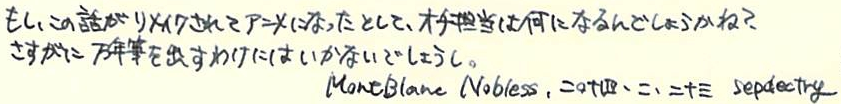 もし、この話がリメイクされてアニメになったとして、オチ担当は何になるんでしょうかね?
さすがに万年筆を出すわけにはいかないでしょうし。
MontBlanc Nobless, 二〇十四・二・二十三